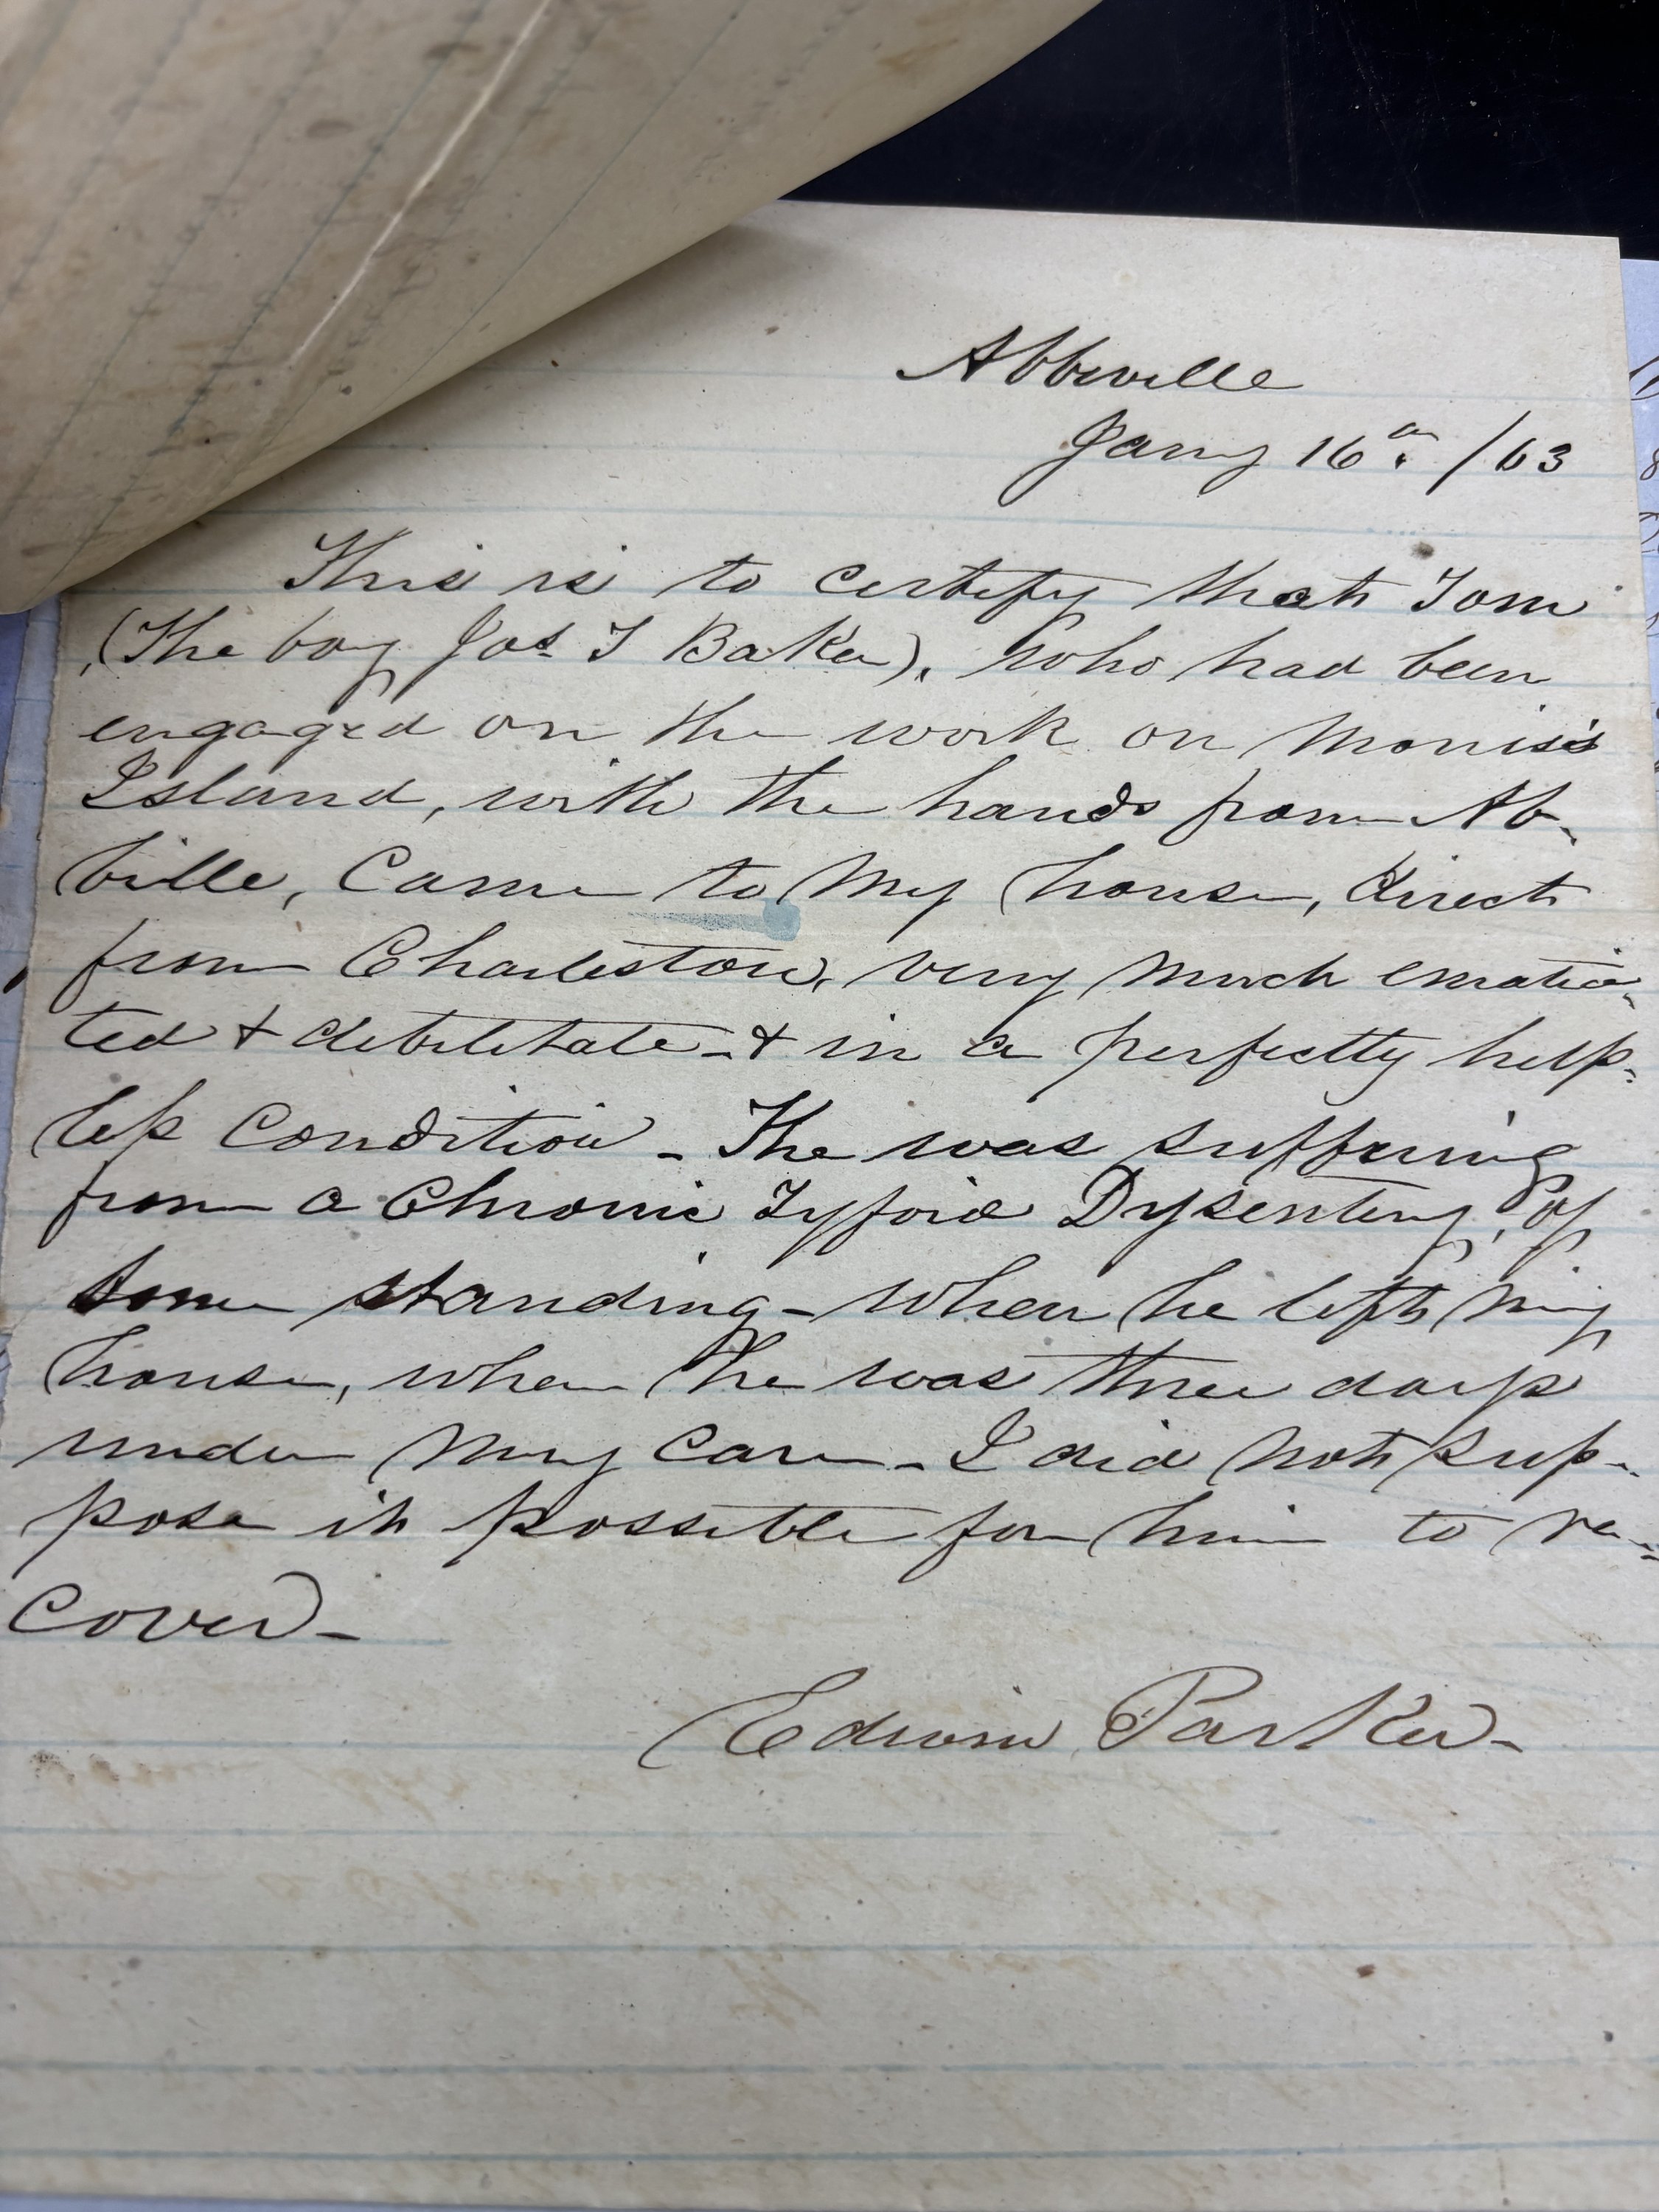 Abbeville
Jany 16th /63
This is to certify that Tom
(The boy Jas. T Baker), who had been
engaged on the work on Morris's
Island, with the hands from Ab-
bille, Came to My house, direct
from Charleston, very much emacia-
ted & debilitate - & in a perfectly help-
less Condition - The was suffering
from a Chronic Tyfoid Dysentery, of
some standing - when he left my
house, when he was three days
under my care - I did not sup-
pose it possible for him to re-
cover -
Edwin Parker -